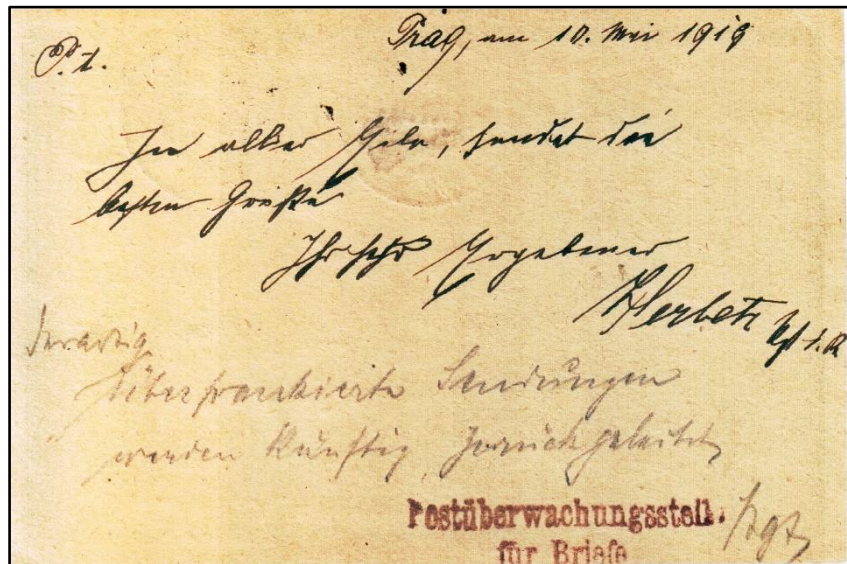 Prag, am 10. Mai 1919
P. t.
In aller Eile, sendet die
besten Grüße
Ihr sehr Ergebener
Herbetz
derartig
überfrankierte Sendungen
werden künftig zurückgeleitet
Postüberwachungsstell.
für Briefe